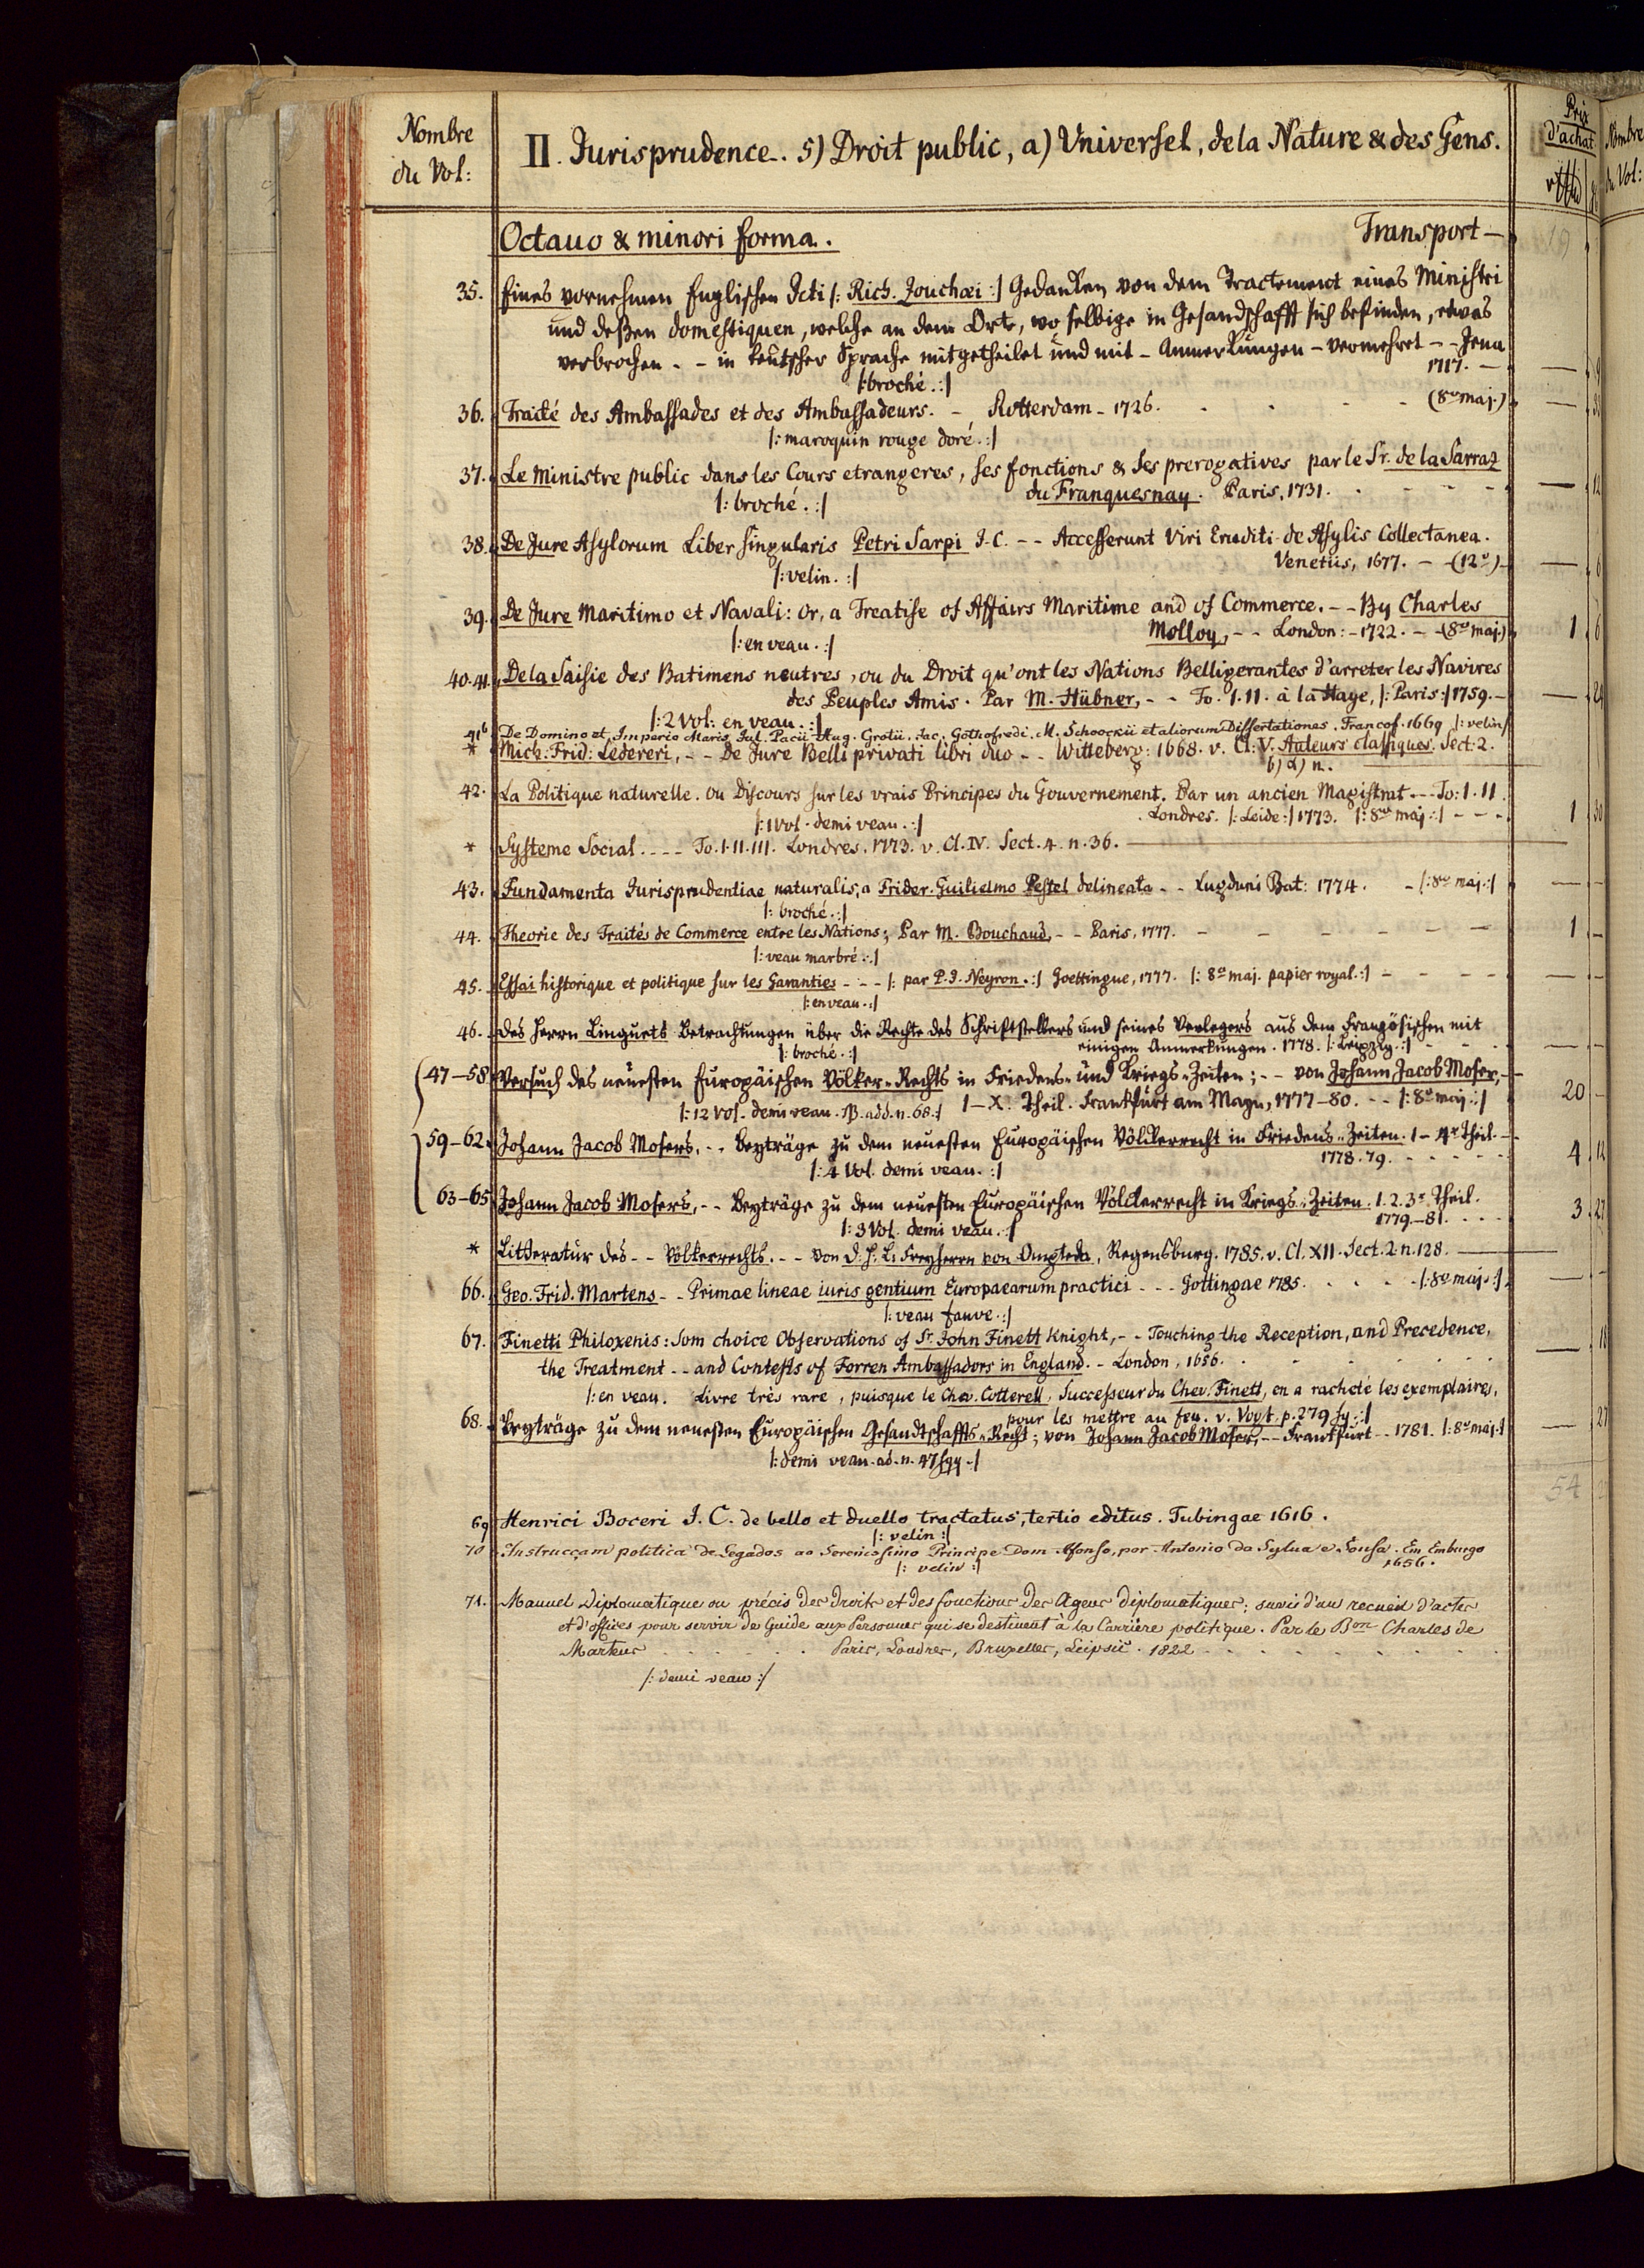 Nombre
du Vol:
II. Jurisprudence. 5) Droit public, a) Universel, de la Nature & des Gens.
Prix
d'achat
Nombre
du Vol:
Octavo & minori forma. Transport — 19
35. Eines vornehmen Englischen Icti /: Rich. Zouchæi :/ Gedanken von dem Tractement eines Ministri
und deßen domestiquen, welche an dem Orte, wo selbige in Gesandschafft sich befinden, etwas
verbrochen - - in teutscher Sprache mitgetheilet und mit - Anmerkungen - vermehret - - Jena
1717. —
/: broché. :/
36. Traité des Ambassades et des Ambassadeurs. - Rotterdam - 1726. (8vo maj.)
/: maroquin rouge doré. :/
37. Le Ministre public dans les Cours etrangeres, ses fonctions & ses prerogatives par le Sr. de la Sarraz
du Franquesnay. Paris, 1731. — 12
/: broché. :/
38. De Jure Asylorum Liber singularis Petri Sarpi I.C. - - Accesserunt Viri Eruditi de Asylis Collectanea.
Venetiis, 1677. - - (12°) — 6
/: velin. :/
39. De Jure Maritimo et Navali: or, a Treatise of Affairs Maritime and of Commerce. - - By Charles
Molloy, - - London: - 1722. - - (8vo maj.) 1 6
/: en veau. :/
40-41. De la Saisie des Batimens neutres, ou du Droit qu'ont les Nations Belligerantes d'arreter les Navires
des Peuples Amis. Par M. Hübner, - - To. I. II. à la Haye, /: Paris :/ 1759. — 24
/: 2 Vol: en veau. :/
41b De Domino et Imperio Maris Jul. Pacii Hug. Grotii, Jac. Gothofredi, M. Schoockii et aliorum Dissertationes. Francof. 1669 /: velin /
* Mich: Frid: Ledereri, - - De Jure Belli privati libri duo - - Witteberg: 1668. v. Cl: V. Auteurs classiques. Sect: 2.
b) α) n.
42. La Politique naturelle. ou Discours sur les vrais Principes du Gouvernement. Par un ancien Magistrat - - To: I. II.
Londres. /: Leide :/ 1773. /: 8vo maj :/ - - - 1 30
/: 1 Vol. demi veau. :/
* Systeme Social - - - To. I. II. III. Londres. 1773. v. Cl. IV. Sect. 4. n. 36.
43. Fundamenta Jurisprudentiae naturalis, a Frider. Guilielmo Pestel delineata - - Lugduni Bat: 1774. - /: 8vo maj :/
/: broché. :/
44. Theorie des Traités de Commerce entre les Nations; Par M. Bouchaud, - - Paris, 1777. 1 —
/: veau marbré :/
45. Essai historique et politique sur les Garanties - - - /: par P. J. Neyron. :/ Goettingue, 1777. /: 8° maj. papier royal. :/
/: en veau. :/
46. des Herrn Linguets Betrachtungen über die Rechte des Schriftstellers und seines Verlegers aus dem Französischen mit
einigen Anmerkungen. 1778. /: Leipzig. :/
/: broché. :/
47-58 Versuch des neuesten Europäischen Völker-Rechts in Friedens- und Kriegs-Zeiten; - - von Johann Jacob Moser,
I-X. Theil. Frankfurt am Mayn, 1777-80. - - /: 8° maj :/ 20 —
/: 12 Vol. demi veau. NB. add. n. 68 :/
59-62. Johann Jacob Mosers, - - Beyträge zu dem neuesten Europäischen Völkerrecht in Friedens-Zeiten. 1 - 4r Theil.
1778. 79. 4 12
/: 4 Vol. demi veau. :/
63-65 Johann Jacob Mosers, - - Beyträge zu dem neuesten Europäischen Völckerrecht in Kriegs-Zeiten. 1. 2. 3r Theil.
1779-81. 3 27
/: 3 Vol. demi veau. :/
* Litteratur des - - Völkerrechts. - - von D. H. L. Freyherrn von Ompteda, Regensburg. 1785. v. Cl. XII. Sect. 2. n. 128.
66. Geo. Frid. Martens - - Primae lineae iuris gentium Europaearum practici - - - Gottingae 1785. - /: 8° maj. :/
/: veau fauve. :/
67. Finetti Philoxenis: Som choice Observations of Sr. John Finett Knight, - - Touching the Reception, and Precedence,
the Treatment - - and Contests of Forren Ambassadors in England. - London, 1656. — 18
/: en veau. Livre très rare, puisque le Chev. Cotterell, Successeur du Chev. Finett, en a racheté les exemplaires,
pour les mettre au feu. v. Vogt. p. 279 sq. :/
68. Beyträge zu dem neuesten Europäischen Gesandtschaffts-Recht; von Johann Jacob Moser, - - Frankfurt - - 1781. /: 8° maj :/ — 27
/: demi veau. ad. n. 47 sqq. :/
54
69 Henrici Boceri I. C. de bello et duello tractatus, tertio editus. Tubingae 1616.
/: velin :/
70 Instruccam politica de Legados ao Serenissimo Principe Dom Afonso, por Antonio da Sylva e Sousa. Em Emburgo
1656.
/: velin :/
71. Manuel Diplomatique ou précis des Droits et des fonctions des Agens diplomatiques; suivi d'un recueil d'actes
et d'offices pour servir de Guide aux Personnes qui se destinent à la Carrière politique. Par le Bon Charles de
Martens Paris, Londres, Bruxelles, Leipsic. 1822
/: demi veau :/